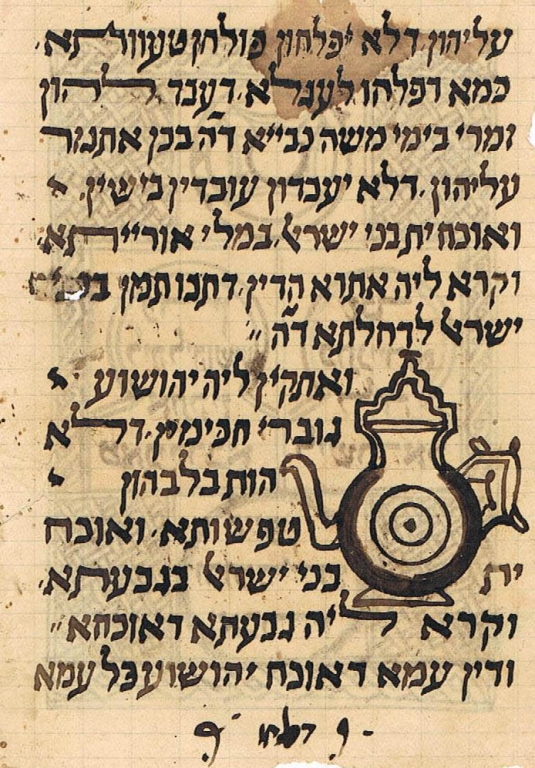 עליהון. דלא יפלחון פולחן טעוותא.
כמא דפלחו לעגלא. דעבד להון
זמרי בימי משה נבייא דה' בכן אתגזר
עליהון. דלא יעבדון עובדין בישין.
ואוכח ית בני ישראל. במלי אורייתא.
וקרא ליה אתרא הדין. דתנו תמן בני
ישראל לדחלתא דה' "
ואתקין ליה יהושוע
גוברי חכימין. דלא
הות בלבהון
טפשותא. ואוכח
ית בני ישראל בגבעתא.
וקרא ליה גבעתא דאוכחא "
ודין עמא דאוכח יהושוע כל עמא